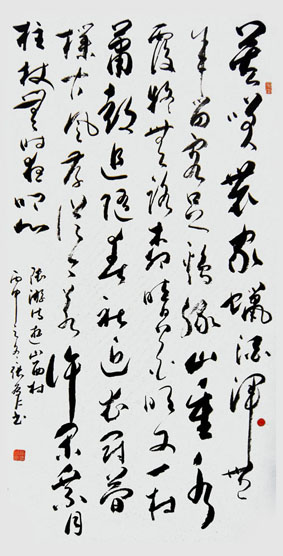 莫笑農家蠟酒渾豐
年留客足鷄豚山重水
復疑無路柳暗花明又一村
蕭鼓追隨春社近衣冠簡
樸古風存從今若許閑乘月
柱杖無時夜叩門
陸游詩遊山西村
丙午書